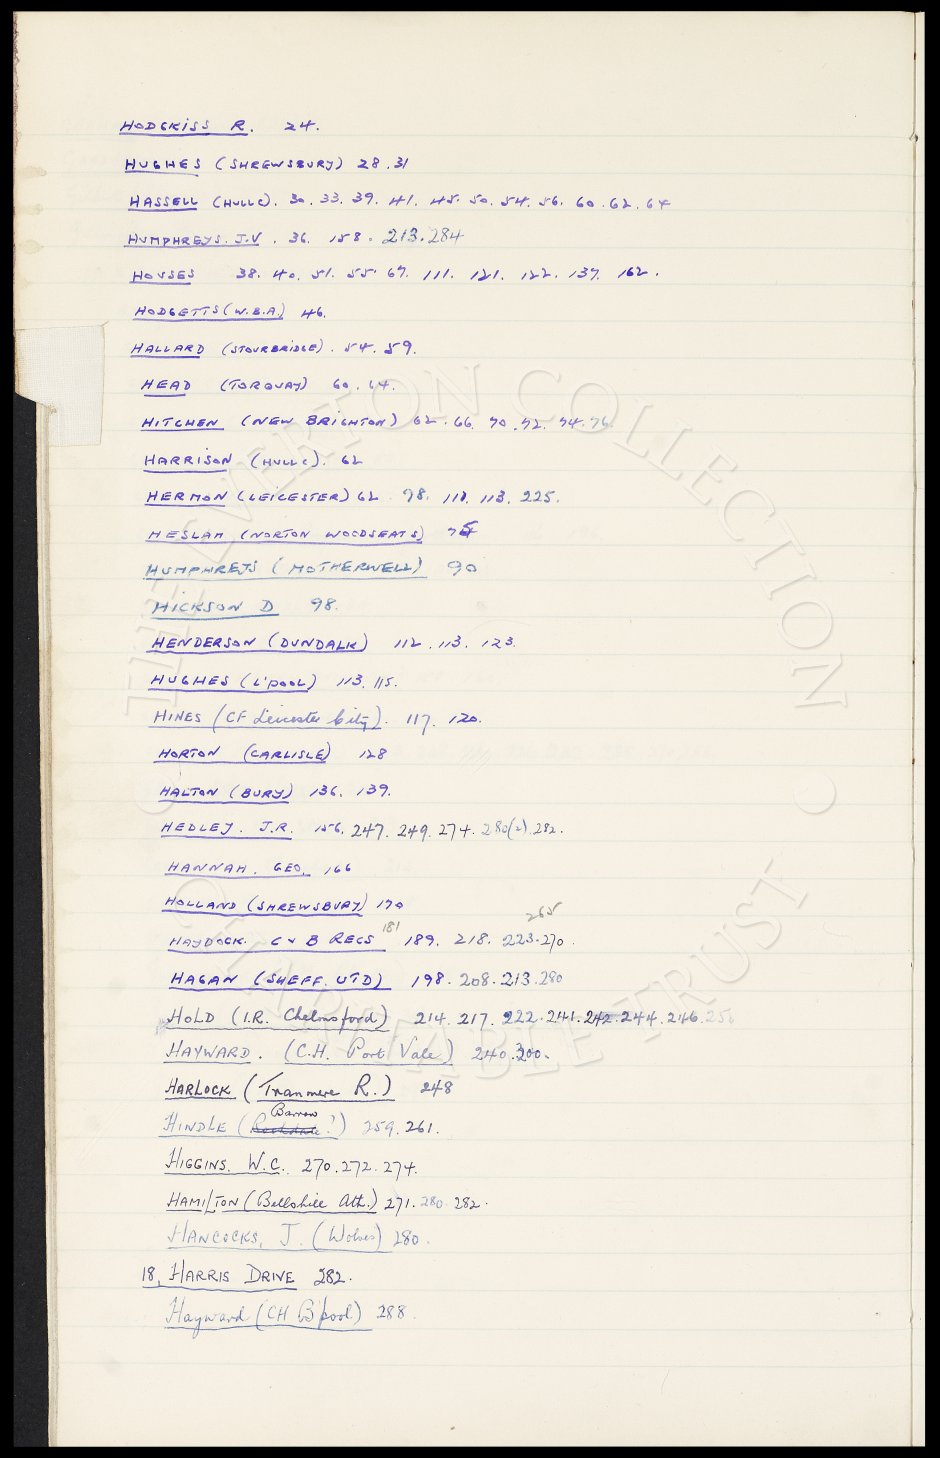 HODGKISS R. 24.
HUGHES (SHREWSBURY) 28.31
HASSELL (HULL C). 30. 33. 39. 41. 45. 50. 54. 56. 60. 62. 64
HUMPHREYS. J.V. 36. 158. 213. 284
HOUSES 38. 40. 51. 55. 67. 111. 121. 122. 137. 162.
HODGETTS (W.B.A.) 46.
HALLARD (STOURBRIDGE). 54. 59.
HEAD (TORQUAY) 60. 64.
HITCHEN (NEW BRIGHTON) 62. 66. 70. 72. 74. 76.
HARRISON (HULL C). 62
HERMON (LEICESTER) 62. 98. 111. 113. 225.
HESLAM (NORTON WOODSEATS)
HUMPHREYS (MOTHERWELL) 90
HICKSON D 98.
HENDERSON (DUNDALK) 112. 113. 123.
HUGHES (L'POOL) 113. 115.
HINES (CF Leicester City). 117. 120.
HORTON (CARLISLE) 128
HALTON (BURY) 136. 139.
HEDLEY. J.R. 156. 247. 249. 274. 280(2). 282.
HANNAH. GEO. 166
HOLLAND (SHREWSBURY) 170
265
HAYDOCK. C & B RECS 181 189. 218. 223. 270.
HAGAN (SHEFF. UTD) 198. 208. 213. 280
HOLD (I.R. Chelmsford) 214. 217. 222. 241. 242. 244. 246. 256
HAYWARD. (C.H. Port Vale) 240. 300.
HARLOCK (Tranmere R.) 248
Barrow
HINDLE (Rochdale?) 259. 261.
HIGGINS. W.C. 270. 272. 274.
HAMILTON (Bellshill Ath.) 271. 280. 282.
HANCOCKS, J. (Wolves) 280.
18, HARRIS DRIVE 282.
Hayward (CH B'pool) 288.
THE EVERTON COLLECTION
CHARITABLE TRUST